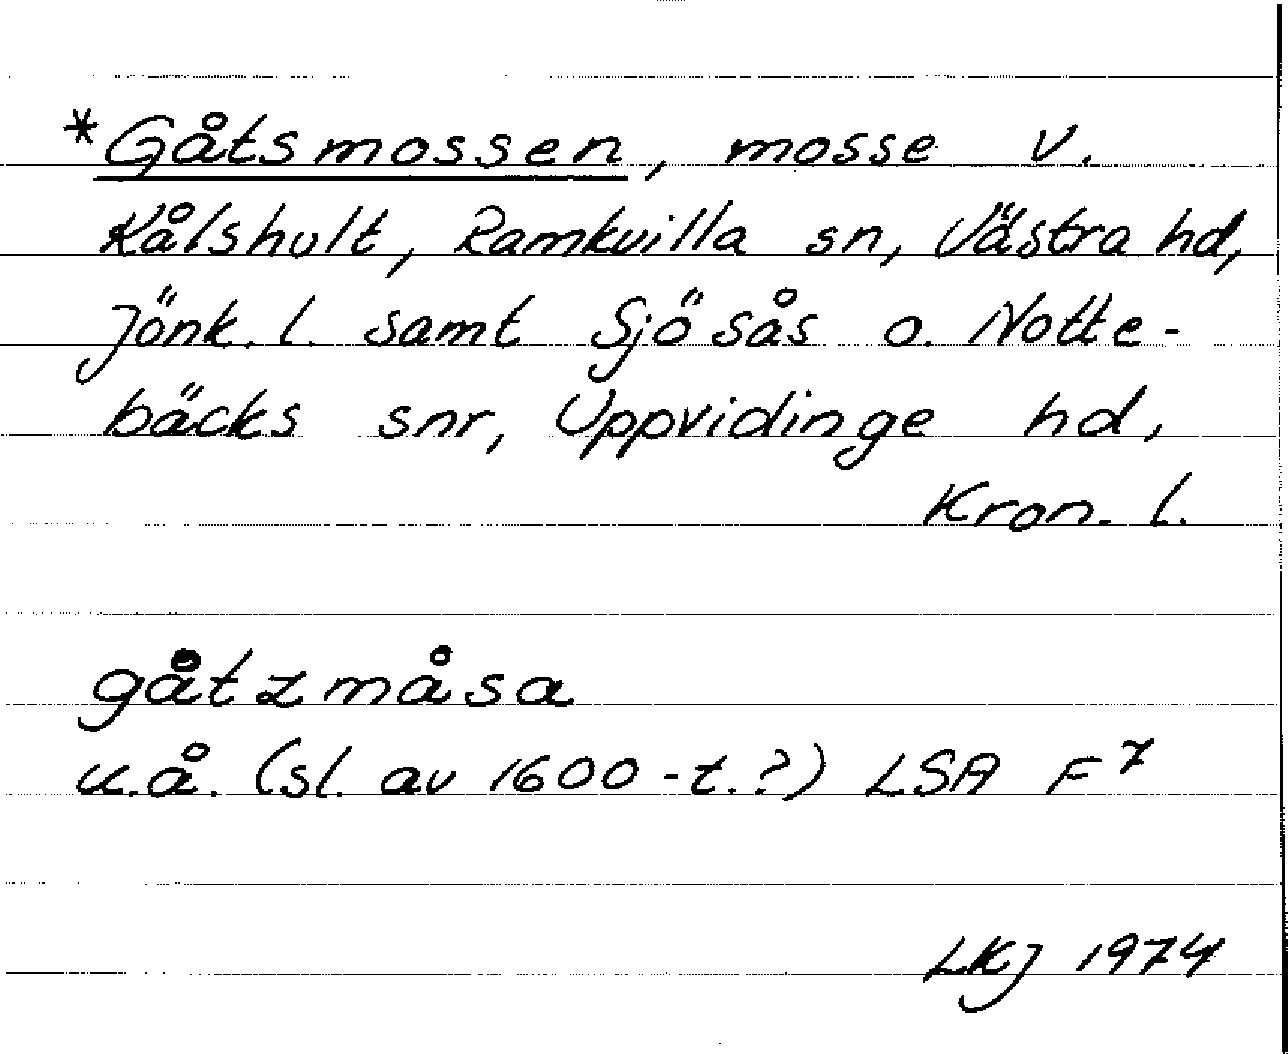 *Gåtsmossen, mosse v.
Kålshult, Ramkvilla sn, Västra hd,
Jönk. l. samt Sjösås o. Notte-
bäcks snr, Uppvidinge hd,
Kron. l.
gåtzmåsa
u.å. (sl. av 1600-t.?) LSA F7
LKJ 1974